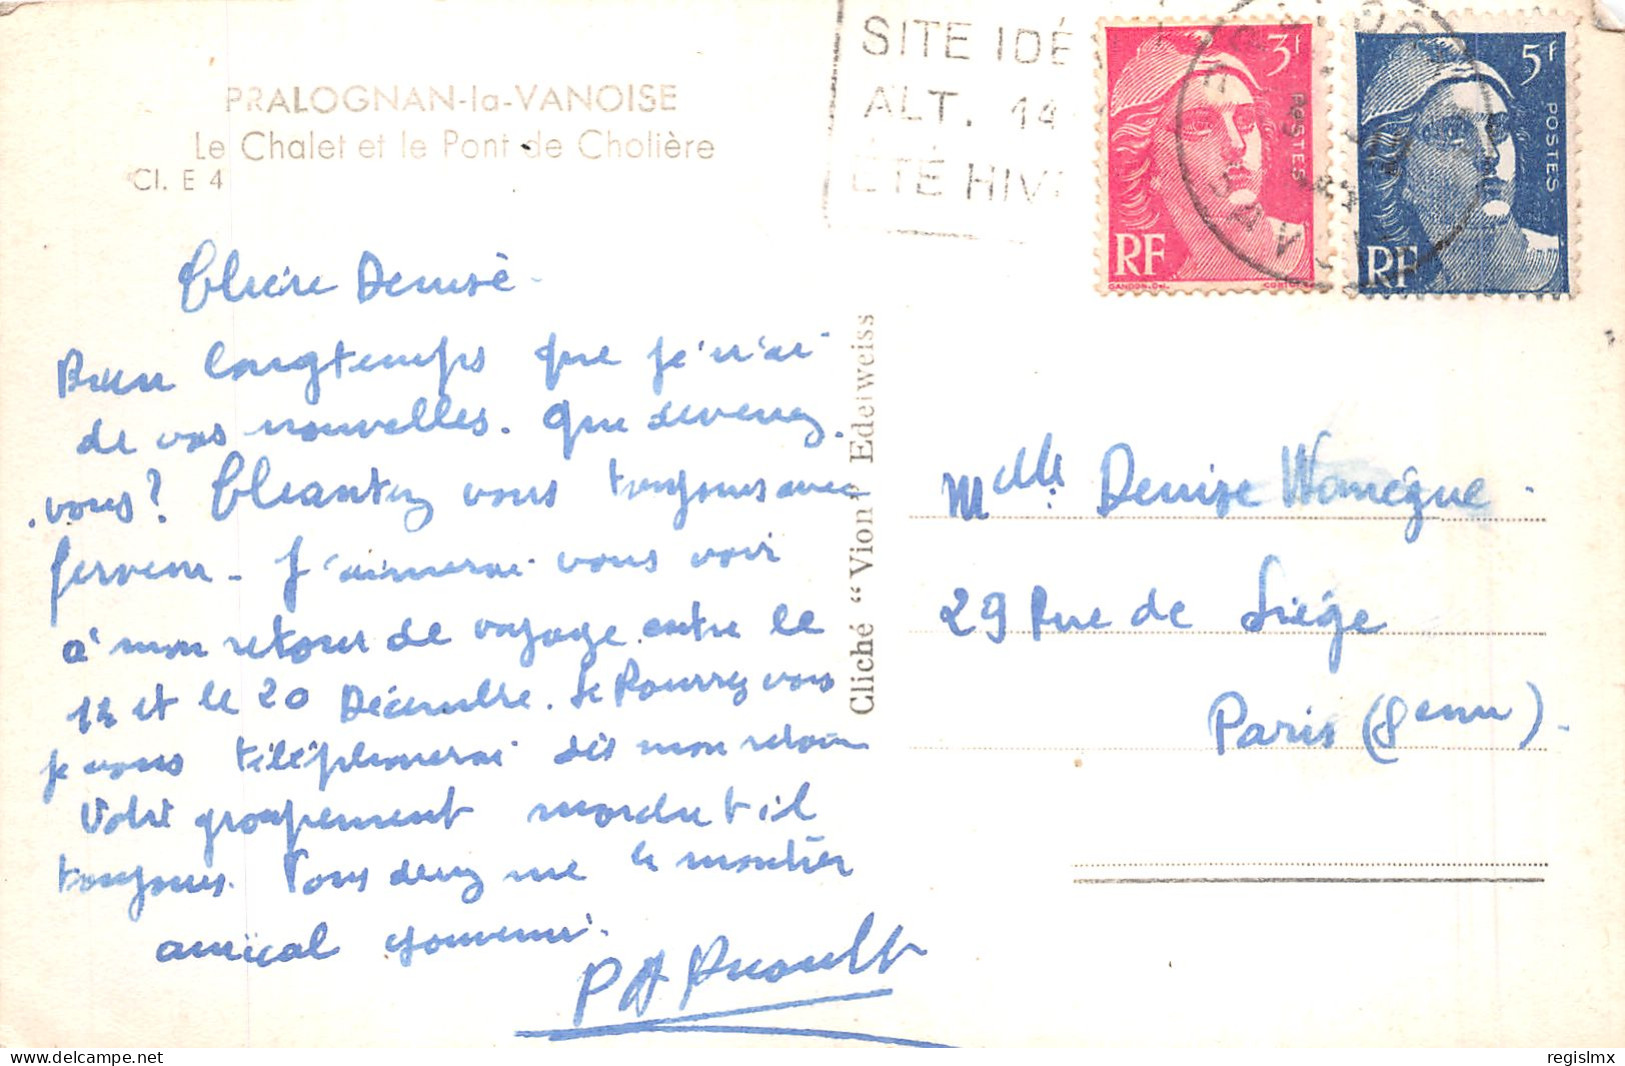 PRALOGNAN-la-VANOISE
Le Chalet et le Pont de Cholière
Cl. E 4
SITE IDÉ
ALT. 14
ÉTÉ HIV
3f
POSTES
RF
GANDON-Del.
5f
POSTES
RF
Chère Denise
Bien longtemps que je n'ai
de vos nouvelles. Que devenez
vous? Chantez vous toujours avec
ferveur - J'aimerai vous voir
à mon retour de voyage entre le
et le 20 Décembre. Si Pourrez vous
je vous téléphonerai dès mon retour
Votre groupement marche t il
toujours. Vous devez me le montrer
amical souvenir.
P A Renault
Cliché "Vion" Edelweiss
Melle Denise
29 Rue de Liège
Paris (8eme).
regislmx